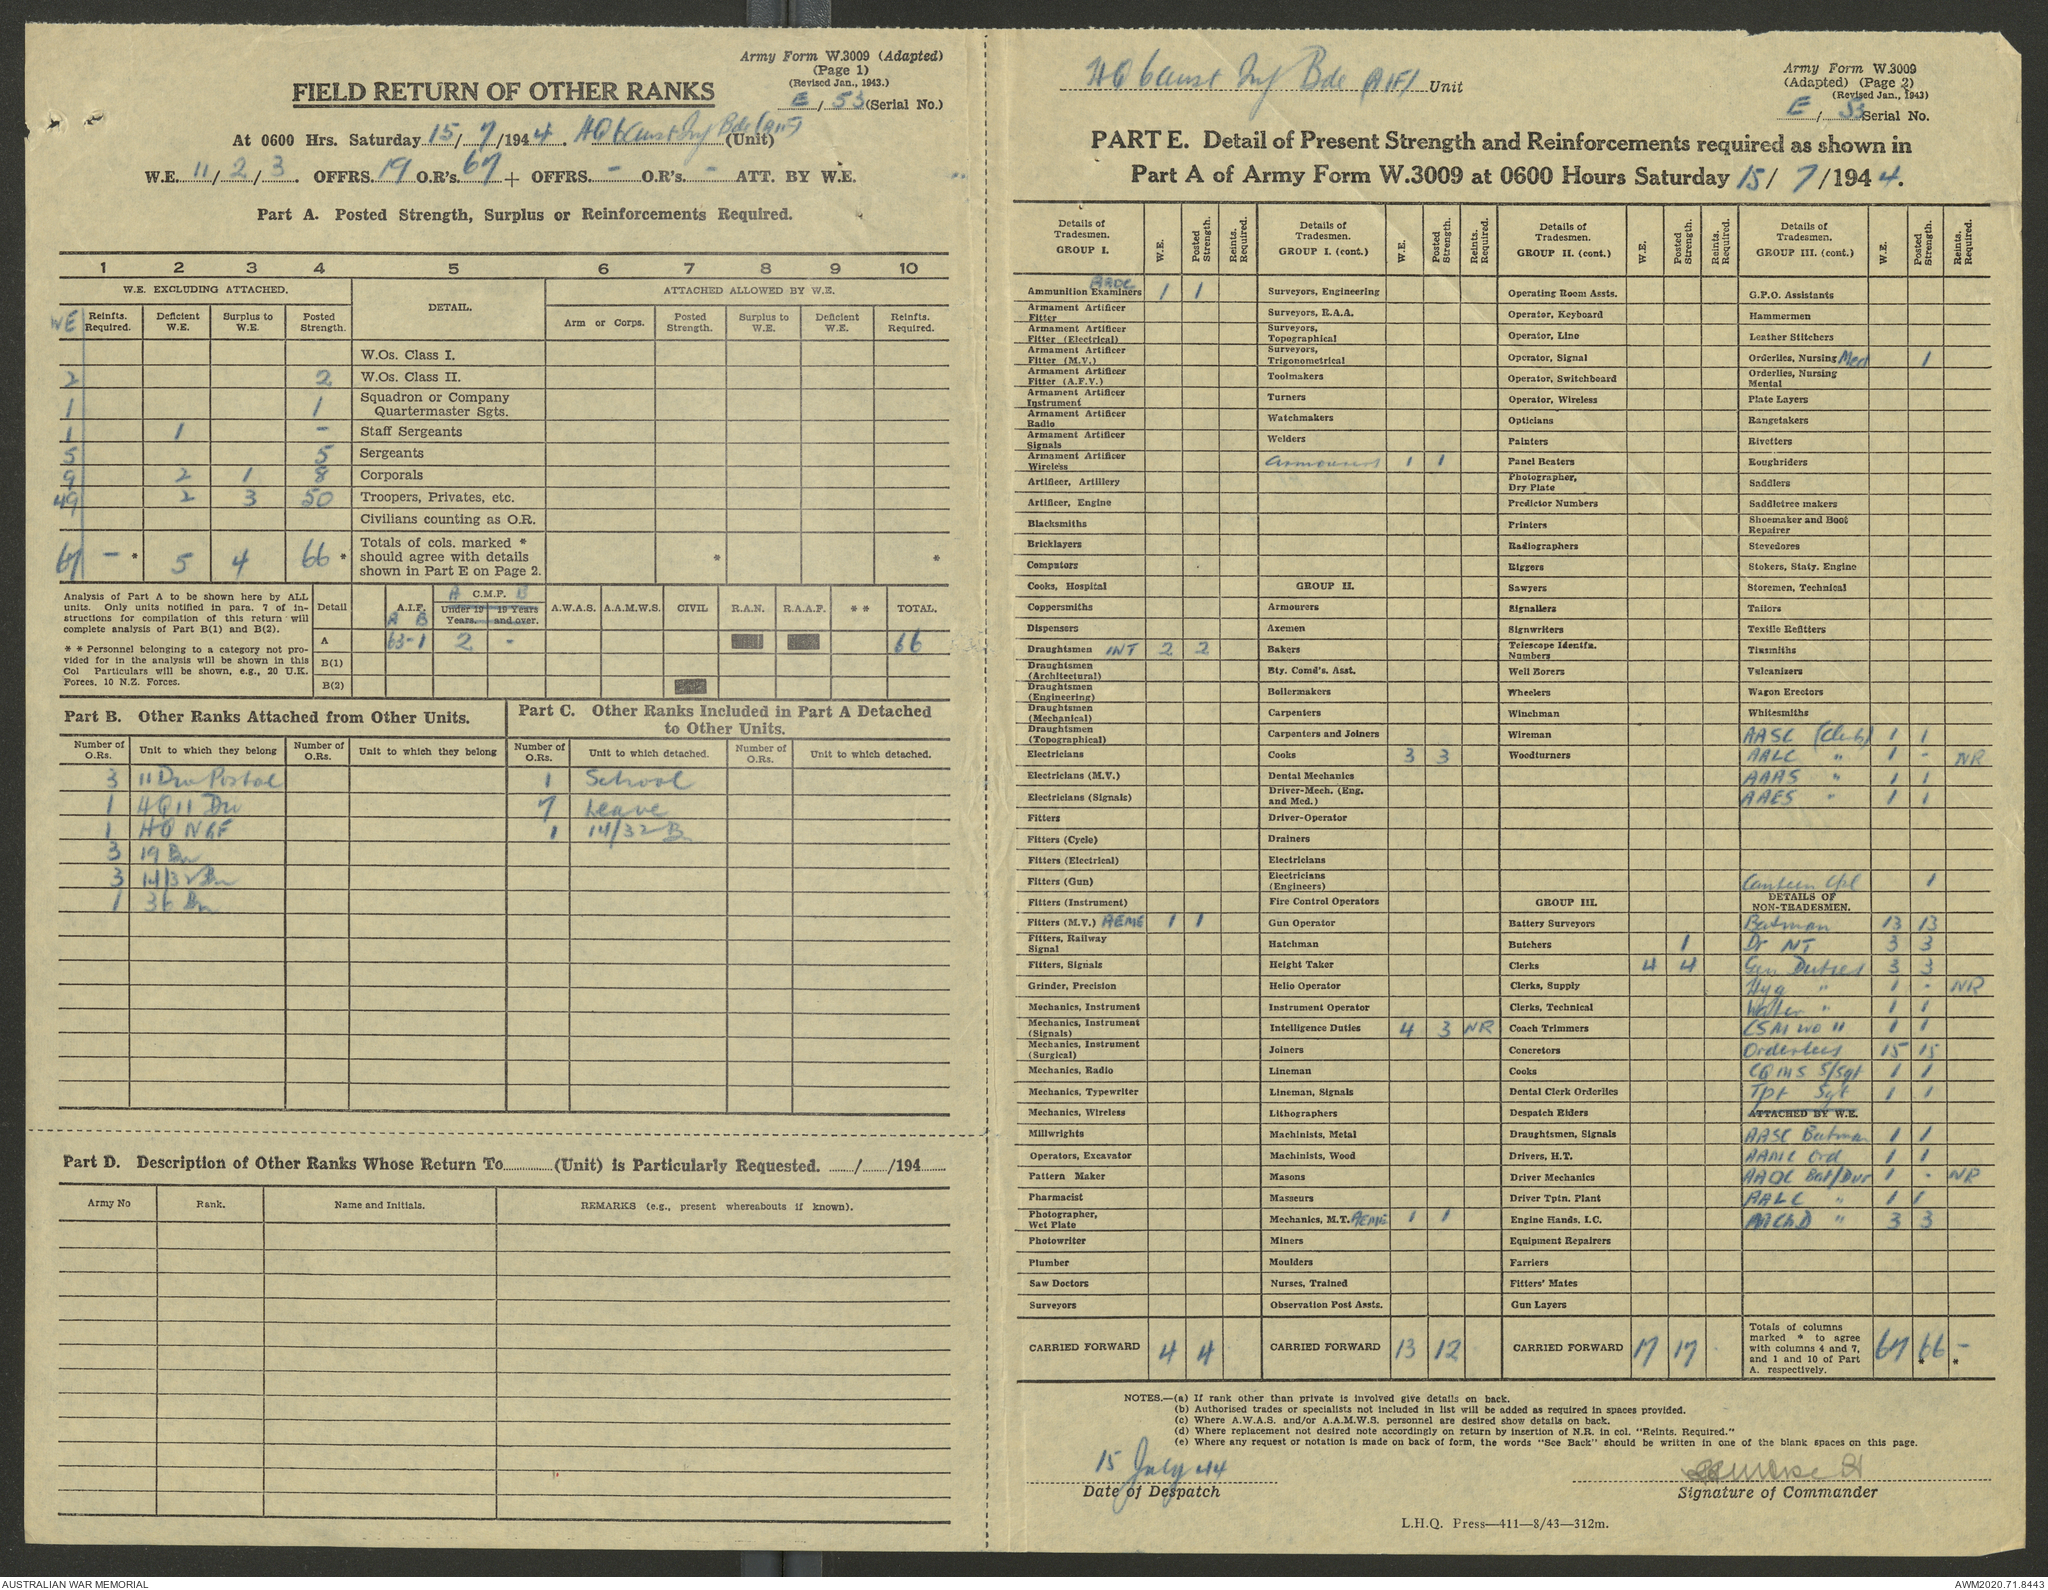 Army Form W.3009 (Adapted)
(Page 1)
(Revised Jan., 1943.)
FIELD RETURN OF OTHER RANKS
E / 53 (Serial No.)
At 0600 Hrs. Saturday 15/7/1944. HQ 6 Aust Inf Bde (AIF) (Unit)
W.E. 11/2/3. OFFRS. 19 O.R's. 67 + OFFRS. - O.R's. - ATT. BY W.E.
Part A. Posted Strength, Surplus or Reinforcements Required.
1 2 3 4 5 6 7 8 9 10
W.E. EXCLUDING ATTACHED. DETAIL. ATTACHED ALLOWED BY W.E.
WE Reinfts. Required. Deficient W.E. Surplus to W.E. Posted Strength. Arm or Corps. Posted Strength. Surplus to W.E. Deficient W.E. Reinfts. Required.
W.Os. Class I.
2 2 W.Os. Class II.
1 1 Squadron or Company Quartermaster Sgts.
1 1 - Staff Sergeants
5 5 Sergeants
9 2 1 8 Corporals
49 2 3 50 Troopers, Privates, etc.
Civilians counting as O.R.
67 - * 5 4 66 * Totals of cols. marked * should agree with details shown in Part E on Page 2. * *
Analysis of Part A to be shown here by ALL units. Only units notified in para. 7 of instructions for compilation of this return will complete analysis of Part B(1) and B(2).
* * Personnel belonging to a category not provided for in the analysis will be shown in this Col Particulars will be shown, e.g., 20 U.K. Forces, 10 N.Z. Forces.
Detail A.I.F. A B C.M.F. A B Under 19 Years. 19 Years and over. A.W.A.S. A.A.M.W.S. CIVIL R.A.N. R.A.A.F. * * TOTAL.
A 63-1 2 - 66
B(1)
B(2)
Part B. Other Ranks Attached from Other Units.
Number of O.Rs. Unit to which they belong Number of O.Rs. Unit to which they belong
3 11 Div Postal
1 HQ 11 Div
1 HQ NGF
3 19 Bn
3 14/32 Bn
1 36 Bn
Part C. Other Ranks Included in Part A Detached to Other Units.
Number of O.Rs. Unit to which detached. Number of O.Rs. Unit to which detached.
1 School
7 Leave
1 14/32 Bn
Part D. Description of Other Ranks Whose Return To (Unit) is Particularly Requested. / /194
Army No Rank. Name and Initials. REMARKS (e.g., present whereabouts if known).
HQ 6 Aust Inf Bde (AIF) Unit
Army Form W.3009
(Adapted) (Page 2)
(Revised Jan., 1943)
E / 53 Serial No.
PART E. Detail of Present Strength and Reinforcements required as shown in
Part A of Army Form W.3009 at 0600 Hours Saturday 15/7/1944.
Details of Tradesmen. GROUP I. W.E. Posted Strength. Reints. Required.
Ammunition Examiners AAOC 1 1
Armament Artificer Fitter
Armament Artificer Fitter (Electrical)
Armament Artificer Fitter (M.V.)
Armament Artificer Fitter (A.F.V.)
Armament Artificer Instrument
Armament Artificer Radio
Armament Artificer Signals
Armament Artificer Wireless
Artificer, Artillery
Artificer, Engine
Blacksmiths
Bricklayers
Computors
Cooks, Hospital
Coppersmiths
Dispensers
Draughtsmen INT 2 2
Draughtsmen (Architectural)
Draughtsmen (Engineering)
Draughtsmen (Mechanical)
Draughtsmen (Topographical)
Electricians
Electricians (M.V.)
Electricians (Signals)
Fitters
Fitters (Cycle)
Fitters (Electrical)
Fitters (Gun)
Fitters (Instrument)
Fitters (M.V.) AEME 1 1
Fitters, Railway Signal
Fitters, Signals
Grinder, Precision
Mechanics, Instrument
Mechanics, Instrument (Signals)
Mechanics, Instrument (Surgical)
Mechanics, Radio
Mechanics, Typewriter
Mechanics, Wireless
Millwrights
Operators, Excavator
Pattern Maker
Pharmacist
Photographer, Wet Plate
Photowriter
Plumber
Saw Doctors
Surveyors
CARRIED FORWARD 4 4
Details of Tradesmen. GROUP I. (cont.) W.E. Posted Strength. Reints. Required.
Surveyors, Engineering
Surveyors, R.A.A.
Surveyors, Topographical
Surveyors, Trigonometrical
Toolmakers
Turners
Watchmakers
Welders
Armourers 1 1
GROUP II.
Armourers
Axemen
Bakers
Bty. Comd's. Asst.
Boilermakers
Carpenters
Carpenters and Joiners
Cooks 3 3
Dental Mechanics
Driver-Mech. (Eng. and Med.)
Driver-Operator
Drainers
Electricians
Electricians (Engineers)
Fire Control Operators
Gun Operator
Hatchman
Height Taker
Helio Operator
Instrument Operator
Intelligence Duties 4 3 NR
Joiners
Lineman
Lineman, Signals
Lithographers
Machinists, Metal
Machinists, Wood
Masons
Masseurs
Mechanics, M.T. AEME 1 1
Miners
Moulders
Nurses, Trained
Observation Post Assts.
CARRIED FORWARD 13 12
Details of Tradesmen. GROUP II. (cont.) W.E. Posted Strength. Reints. Required.
Operating Room Assts.
Operator, Keyboard
Operator, Line
Operator, Signal
Operator, Switchboard
Operator, Wireless
Opticians
Painters
Panel Beaters
Photographer, Dry Plate
Predictor Numbers
Printers
Radiographers
Riggers
Sawyers
Signallers
Signwriters
Telescope Identfn. Numbers
Well Borers
Wheelers
Winchman
Wireman
Woodturners
GROUP III.
Battery Surveyors
Butchers 1
Clerks 4 4
Clerks, Supply
Clerks, Technical
Coach Trimmers
Concretors
Cooks
Dental Clerk Orderlies
Despatch Riders
Draughtsmen, Signals
Drivers, H.T.
Driver Mechanics
Driver Tptn. Plant
Engine Hands, I.C.
Equipment Repairers
Farriers
Fitters' Mates
Gun Layers
CARRIED FORWARD 17 17
Details of Tradesmen. GROUP III. (cont.) W.E. Posted Strength. Reints. Required.
G.P.O. Assistants
Hammermen
Leather Stitchers
Orderlies, Nursing Med 1
Orderlies, Nursing Mental
Plate Layers
Rangetakers
Rivetters
Roughriders
Saddlers
Saddletree makers
Shoemaker and Boot Repairer
Stevedores
Stokers, Staty. Engine
Storemen, Technical
Tailors
Textile Refitters
Tinsmiths
Vulcanizers
Wagon Erectors
Whitesmiths
AASC (Clerks) 1 1
AALC " 1 - NR
AAAS " 1 1
AAES " 1 1
Canteen Cpl 1
DETAILS OF NON-TRADESMEN.
Batman 13 13
Dr MT 3 3
Gen Duties 3 3
Hyg " 1 - NR
Water " 1 1
CSM WO II 1 1
Orderlies 15 15
CQMS S/Sgt 1 1
Tpt Sgt 1 1
ATTACHED BY W.E.
AASC Batman 1 1
AAMC Ord 1 1
AAOC Bat/Dvr 1 - NR
AALC " 1 1
AAChD " 3 3
Totals of columns marked * to agree with columns 4 and 7, and 1 and 10 of Part A. respectively. 67 66 * - *
NOTES.—(a) If rank other than private is involved give details on back.
(b) Authorised trades or specialists not included in list will be added as required in spaces provided.
(c) Where A.W.A.S. and/or A.A.M.W.S. personnel are desired show details on back.
(d) Where replacement not desired note accordingly on return by insertion of N.R. in col. "Reints. Required."
(e) Where any request or notation is made on back of form, the words "See Back" should be written in one of the blank spaces on this page.
15 July 44
Date of Despatch
Signature of Commander
L.H.Q. Press—411—8/43—312m.
AUSTRALIAN WAR MEMORIAL
AWM2020.71.8443